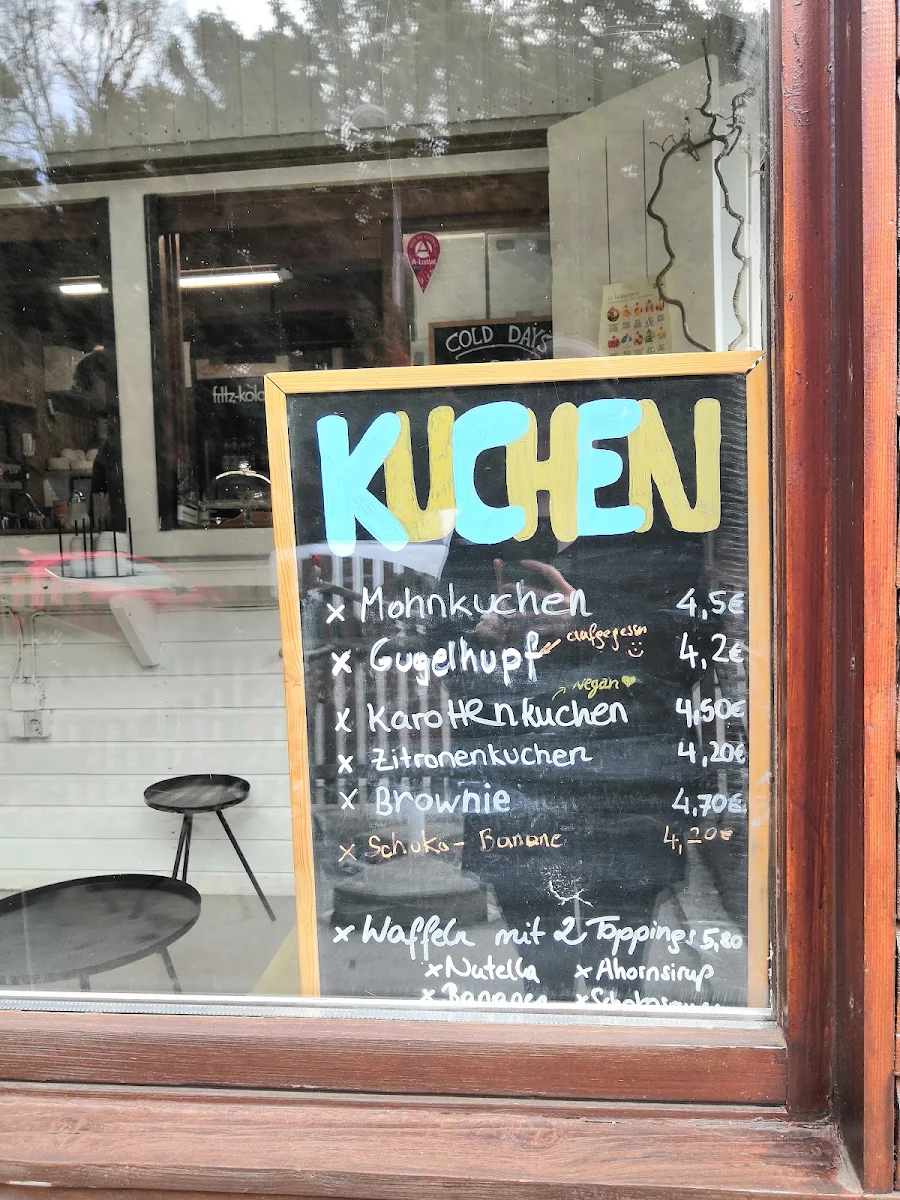 COLD DAYS
fritz-kola
KUCHEN
x Mohnkuchen 4,5€
aufgegessen
x Gugelhupf 4,2€
vegan
x Karottenkuchen 4,50€
x Zitronenkuchen 4,20€
x Brownie 4,70€
x Schoko-Banane 4,20€
x Waffeln mit 2 Toppings 5,80
x Nutella x Ahornsirup
x Bananen